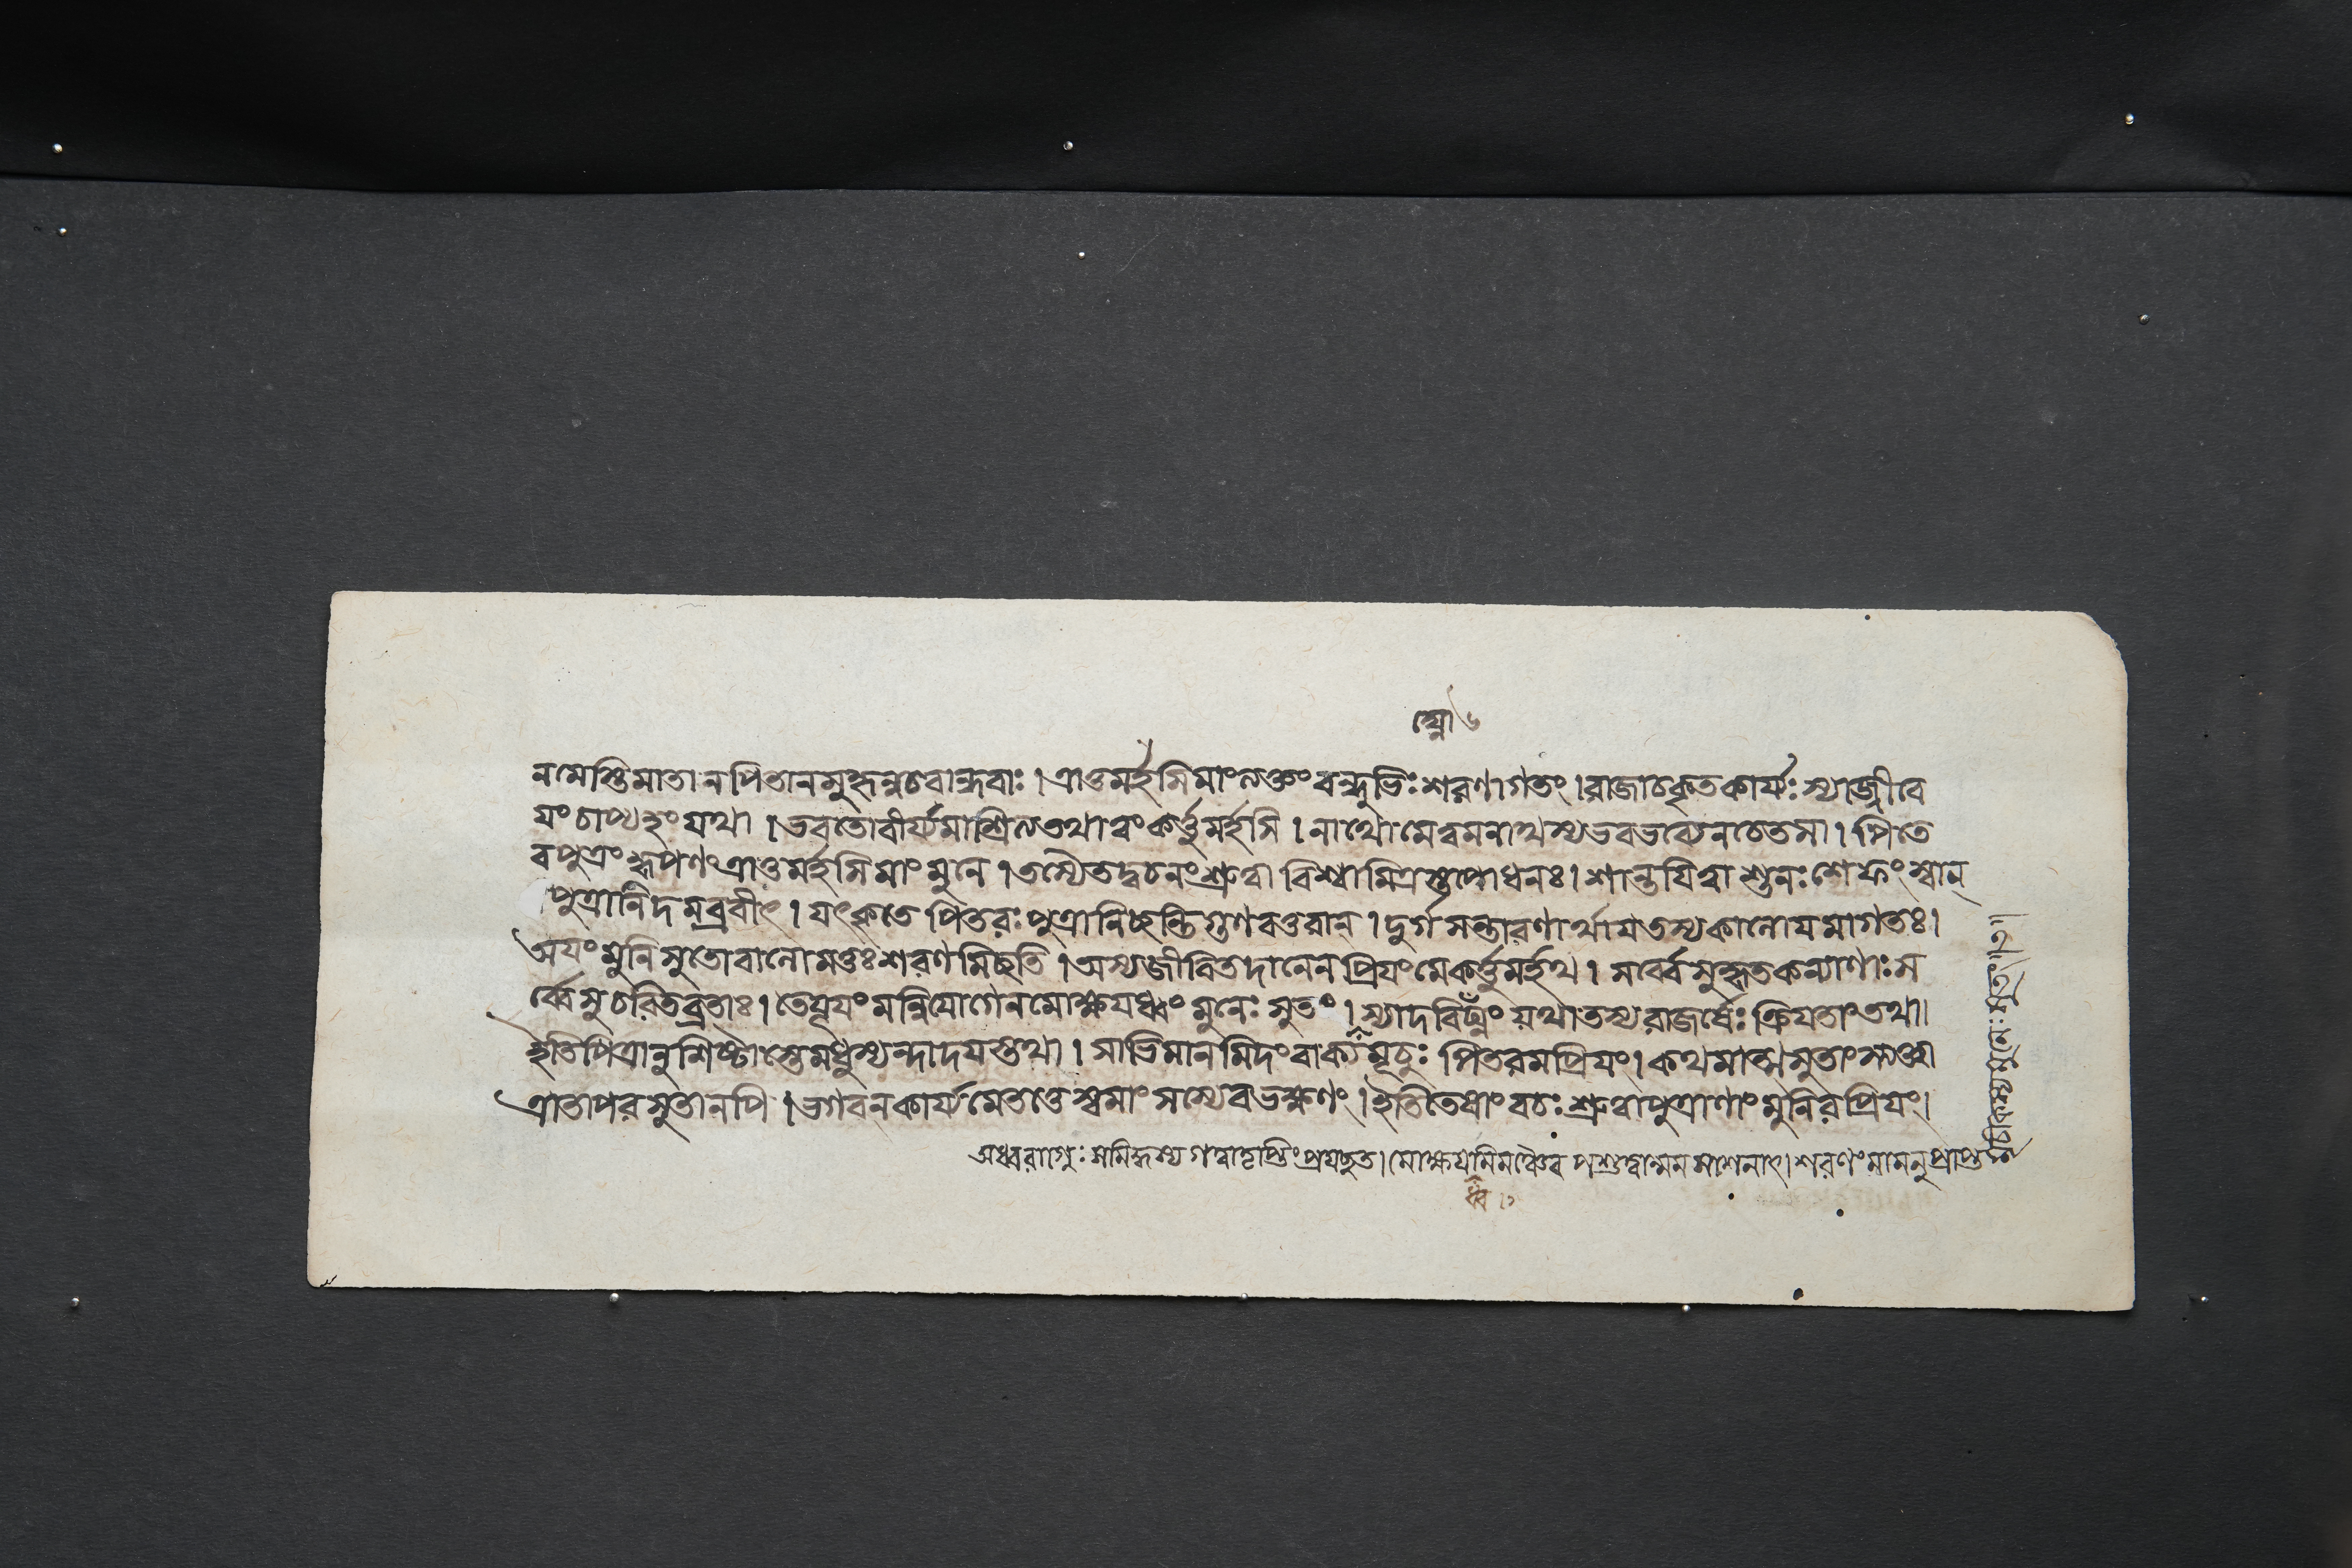 ক্ষো ৬
নমেস্তি মাতা ন পিতা ন সুহৃন্নচবান্ধবাঃ । ত্রাতুমর্হসি মাং ত্যক্তং বন্ধুভিঃ শরণাগতং । রাজা চ কৃতকার্য্যঃ স্যাজ্জীবে
যং চাপ্যহং যথা । ভবতো বীর্য্যমাশ্রিত্য তথা ত্বং কর্ত্তুমর্হসি । নাথো মে ত্বমনাথস্য ভব ভব্যেন চেতসা । পিতে
ব পুত্রং কৃপণং ত্রাতুমর্হসি মাং মুনে । তস্যৈতদ্বচনং শ্রুত্বা বিশ্বামিত্রস্তপোধনঃ । শান্তয়িত্বা শুনঃশেফং স্বান্
পুত্রানিদমব্রবীৎ । যৎকৃতে পিতরঃ পুত্রানিচ্ছন্তি গুণবত্তরান্ । দুর্গসন্তারণার্থায় তস্য কালোয়মাগতঃ ।
অয়ং মুনিসুতো বালো মত্তঃ শরণমিচ্ছতি । অস্য জীবিতদানেন প্রিয়ং মে কর্ত্তুমর্হথ । সর্ব্বে সুকৃতকল্যাণাঃ স
র্ব্বে সুচরিতব্রতাঃ । তে যূয়ং মন্নিয়োগেন মোক্ষয়ধ্বং মুনেঃ সুতং । স্যাদবিঘ্নং যথা তস্য রাজর্ষেঃ ক্রিয়তাং তথা ॥
ইতি পিত্রানুশিষ্টাস্তে মধুস্যন্দাদয়স্তথা । সাভিমানমিদং বাক্যমূচুঃ পিতরমপ্রিয়ং । কথমাত্মসুতাংস্ত্যক্ত্বা
ত্রাতা পরসুতানপি । ভগবন্ কার্য্যমেতত্তে স্বমাংসস্যেব ভক্ষণং । ইতি তেষাং বচঃ শ্রুত্বা পুত্রাণাং মুনিরপ্রিয়ং ।
অধ্বরাগ্নেঃ সমিদ্ধস্য গত্বা তৃপ্তিং প্রযচ্ছত । মোক্ষয় পশুত্বা শরণং মামনুপ্রাপ্ত